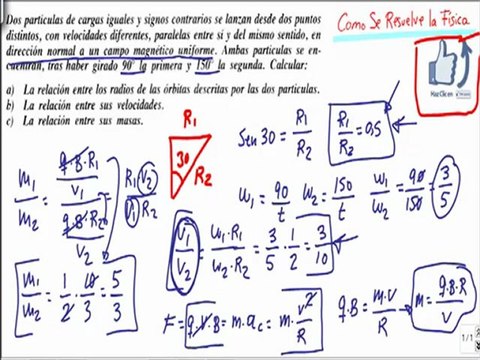 Dos partículas de cargas iguales y signos contrarios se lanzan desde dos puntos
distintos, con velocidades diferentes, paralelas entre sí y del mismo sentido, en
dirección normal a un campo magnético uniforme. Ambas partículas se en-
cuentran, tras haber girado 90° la primera y 150° la segunda. Calcular:
a) La relación entre los radios de las órbitas descritas por las dos partículas.
b) La relación entre sus velocidades.
c) La relación entre sus masas.
Como Se Resuelve la Física
Haz Clic en
R1
30
R2
Sen 30 = R1/R2
R1/R2 = 0,5
m1/m2 = (q·B·R1/v1)/(q·B·R2/v2)
R1 v2
v1 R2
w1 = 90/t w2 = 150/t w1/w2 = 90/150 = 3/5
v1/v2 = w1·R1/w2·R2 = 3/5 · 1/2 = 3/10
m1/m2 = 1/2 · 10/3 = 5/3
F = q·v·B = m·ac = m·v²/R
q·B = m·v/R
m = q·B·R/v
1/1